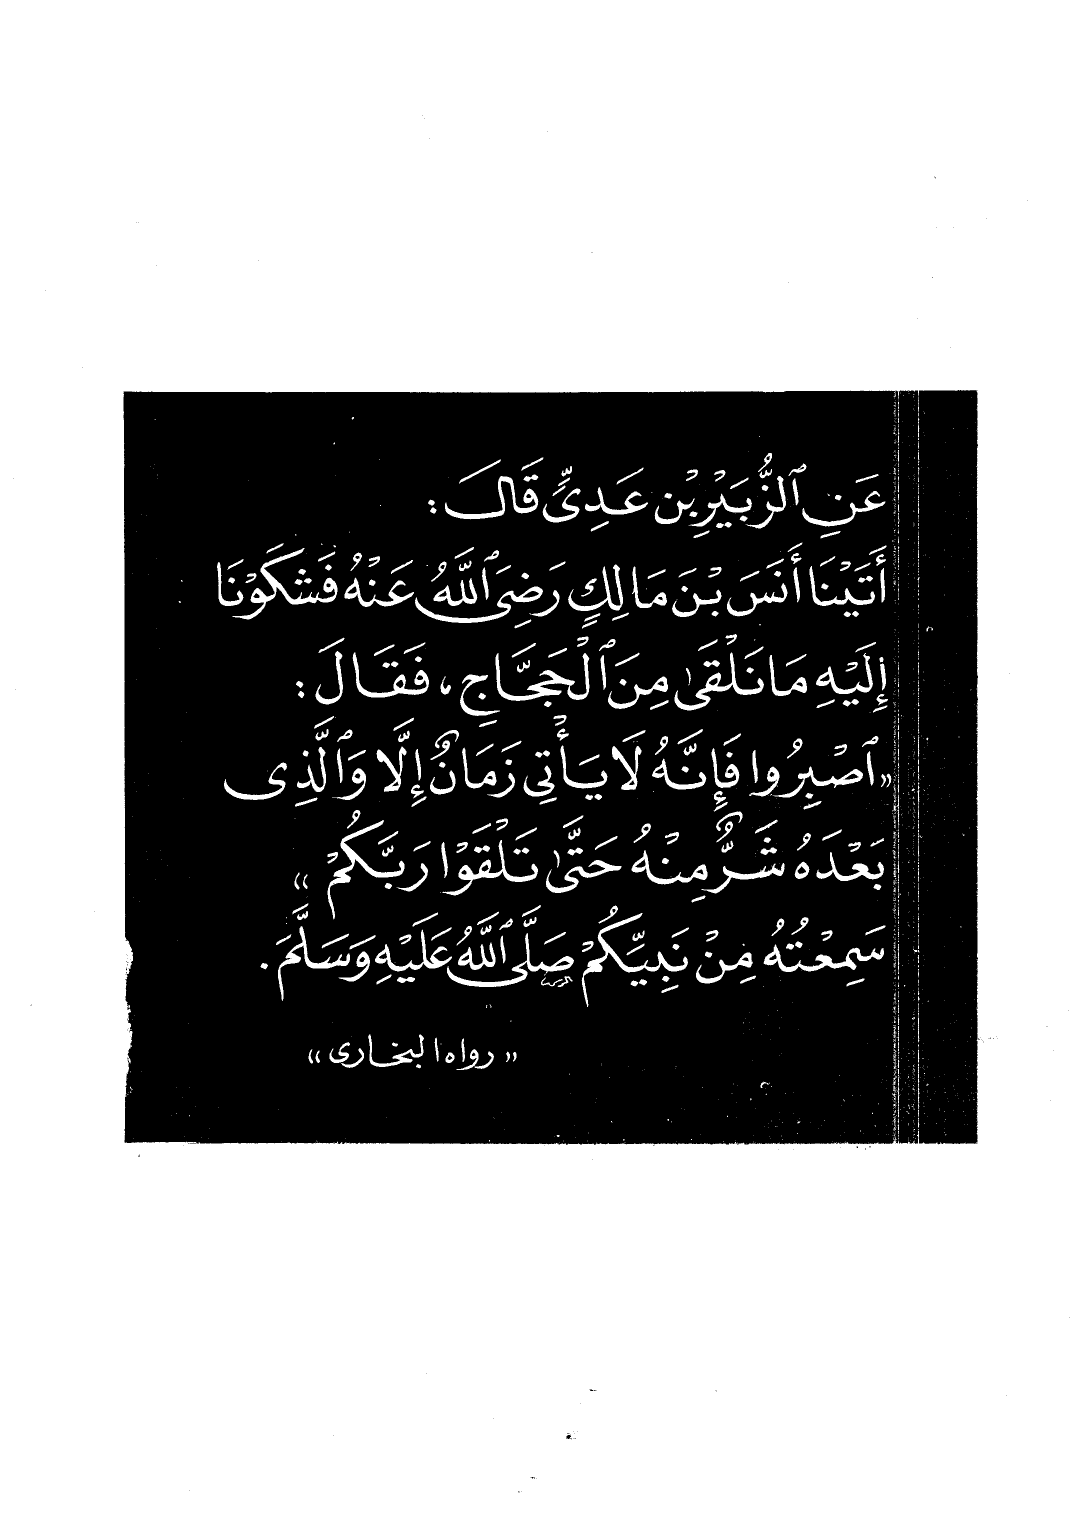 عَنِ ٱلزُّبَيْرِ بْنِ عَدِيٍّ قَالَ :
أَتَيْنَا أَنَسَ بْنَ مَالِكٍ رَضِيَ ٱللَّهُ عَنْهُ فَشَكَوْنَا
إِلَيْهِ مَا نَلْقَىٰ مِنَ ٱلْحَجَّاجِ ، فَقَالَ :
« ٱصْبِرُوا فَإِنَّهُ لَا يَأْتِي زَمَانٌ إِلَّا وَٱلَّذِى
بَعْدَهُ شَرٌّ مِنْهُ حَتَّىٰ تَلْقَوْا رَبَّكُمْ »
سَمِعْتُهُ مِنْ نَبِيِّكُمْ صَلَّى ٱللَّهُ عَلَيْهِ وَسَلَّمَ .
« رواه البخارى »